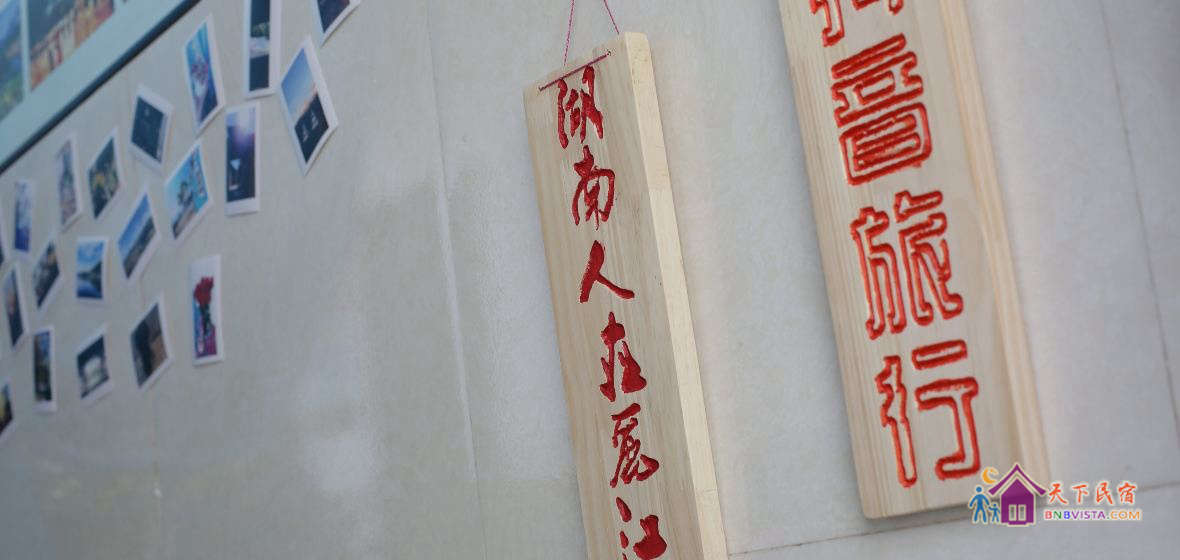 湖南人在丽江
抖音旅行
天下民宿
BNBVISTA.COM